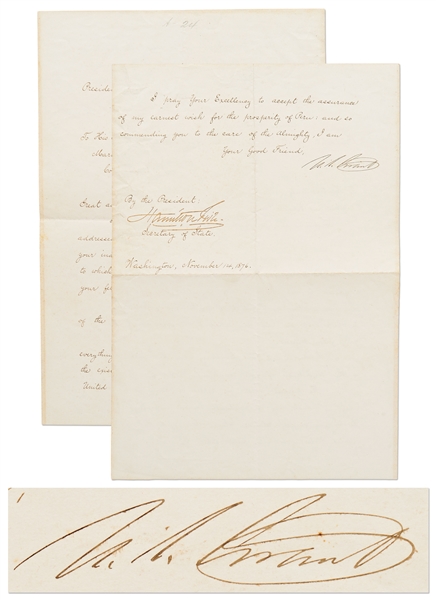 President
To His
Great a
addressed
your in
to which
your fe
of the
everything
the
United
I pray Your Excellency to accept the assurance
of my earnest wish for the prosperity of Peru: and so
commending you to the care of the Almighty, I am
Your Good Friend,
U. S. Grant
By the President:
Hamilton Fish.
Secretary of State.
Washington, November 14, 1876.
U. S. Grant